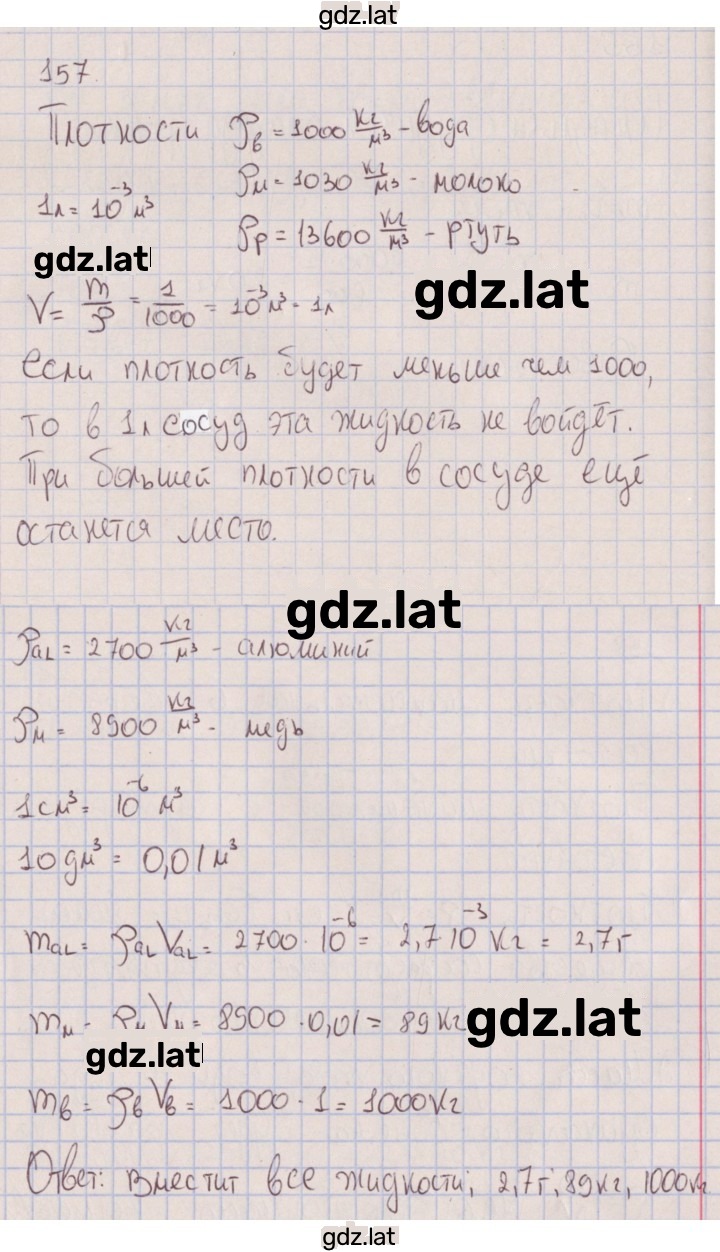 gdz.lat
157
Плотности ρв = 1000 кг/м³ - вода
ρм = 1030 кг/м³ - молоко
1л = 10⁻³ м³
ρр = 13600 кг/м³ - ртуть
gdz.lat
gdz.lat
V = m/ρ = 1/1000 = 10⁻³ м³ = 1л
если плотность будет меньше чем 1000,
то в 1л сосуд эта жидкость не войдёт.
При большей плотности в сосуде ещё
останется место.
gdz.lat
ρaL = 2700 кг/м³ - алюминий
ρм = 8900 кг/м³ - медь
1 см³ = 10⁻⁶ м³
10 дм³ = 0,01 м³
maL = ρaL VaL = 2700 · 10⁻⁶ = 2,7 10⁻³ кг = 2,7г
mм = ρм Vм = 8900 · 0,01 = 89 кг
gdz.lat
gdz.lat
mв = ρв Vв = 1000 · 1 = 1000 кг
Ответ: вместит все жидкости; 2,7г; 89кг, 1000кг
gdz.lat